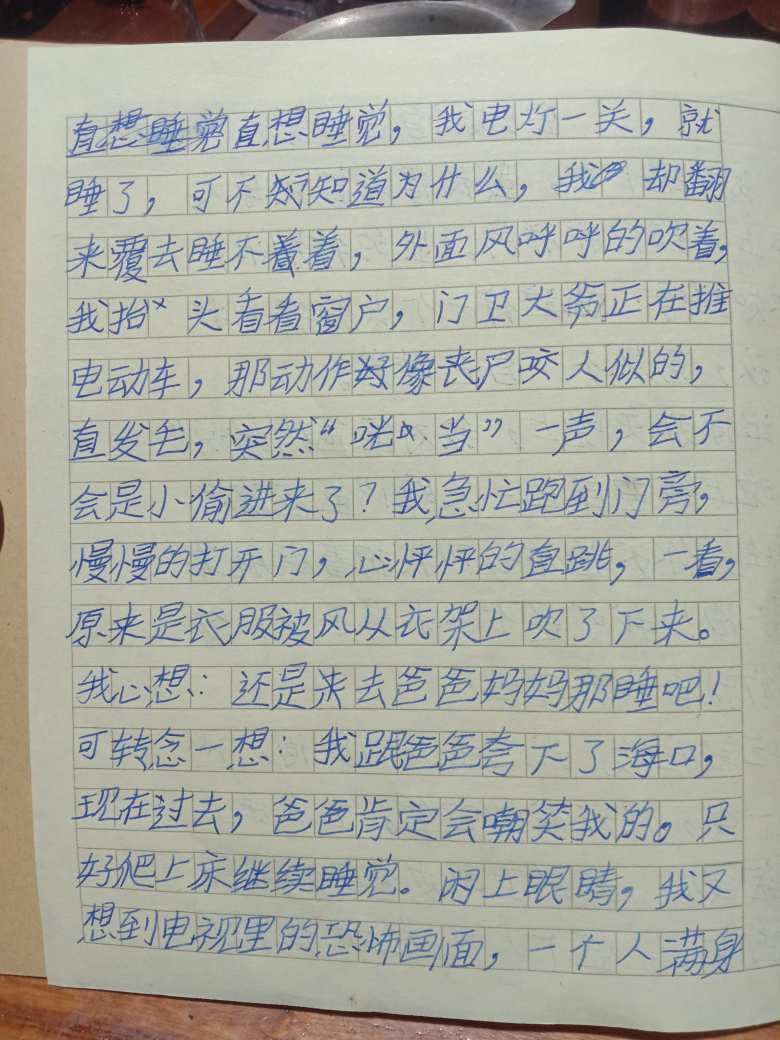 直想睡觉直想睡觉，我电灯一关，就
睡了，可不知知道为什么，我却翻
来覆去睡不着着，外面风呼呼的吹着，
我抬头看看窗户，门卫大爷正在推
电动车，那动作好像丧尸咬人似的，
直发毛，突然“咣当”一声，会不
会是小偷进来了？我急忙跑到门旁，
慢慢的打开门，心怦怦的直跳，一看，
原来是衣服被风从衣架上吹了下来。
我心想：还是来去爸爸妈妈那睡吧！
可转念一想：我跟爸爸夸下了海口，
现在过去，爸爸肯定会嘲笑我的。只
好爬上床继续睡觉。闭上眼睛，我又
想到电视里的恐怖画面，一个人满身